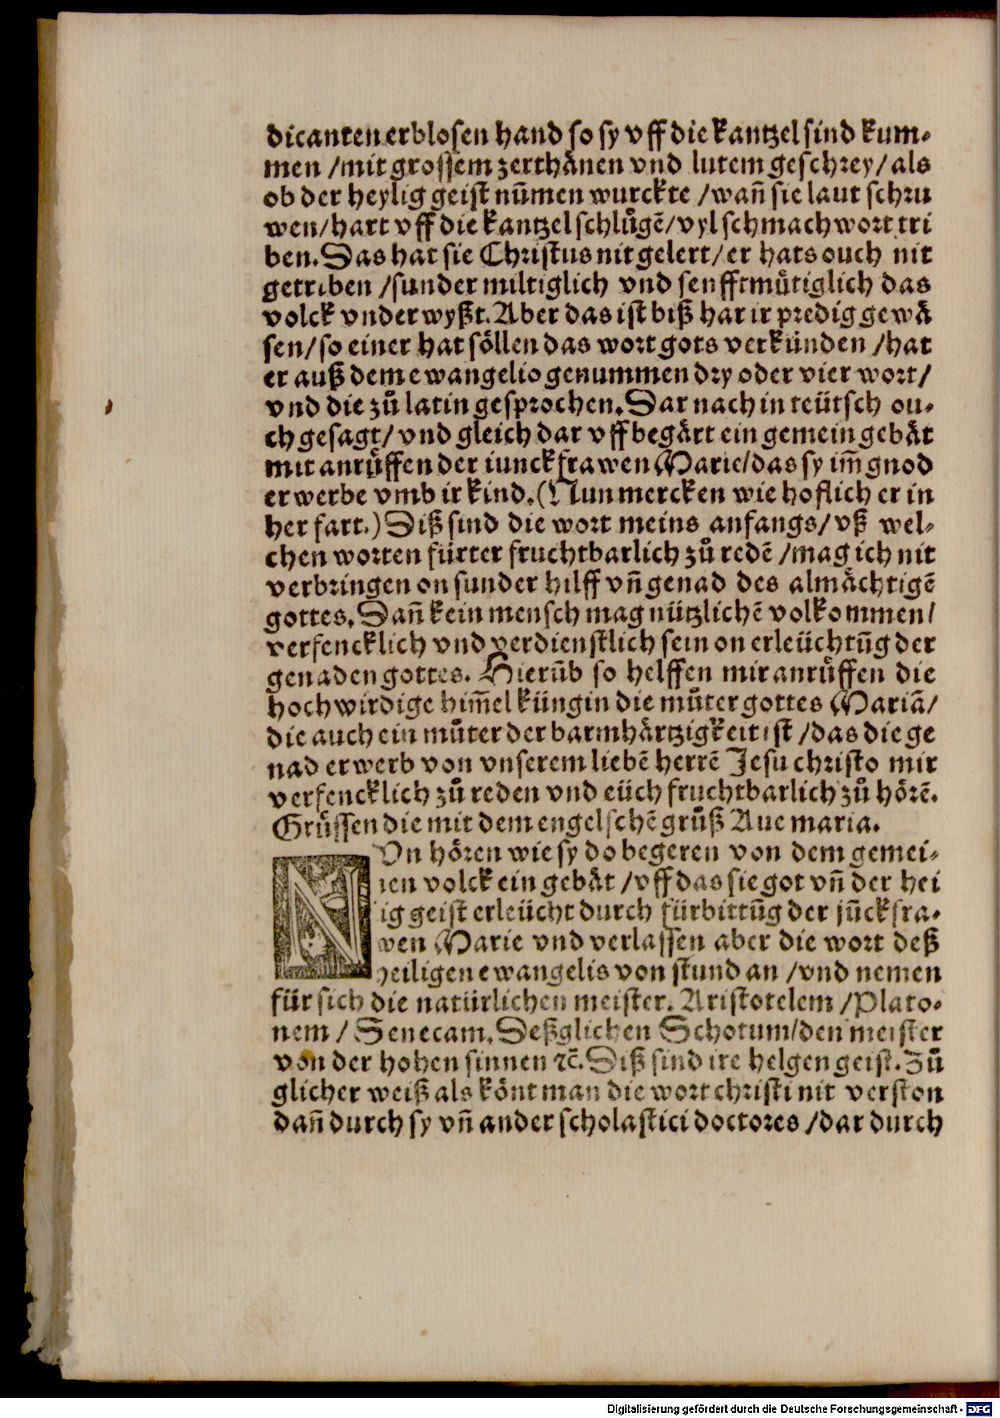 dicanten erblosen hand so sy vff die kantzel sind kum⸗
men /mit grossem zerthånen vnd lutem geschrey/ als
ob der heylig geist nům̄en wurckte /wañ sie laut schru
wen/hart vff die kantzel schlůgē/vyl schmachwort tri
ben. Das hat sie Christus nit gelert/er hats ouch nit
getriben /sunder miltiglich vnd senfftmůtiglich das
volck vnderwyßt. Aber das ist biß har ir predig gewå
sen/so einer hat söllen das wort gots verkünden /hat
er auß dem ewangelio genummen dry oder vier wort/
vnd die zů latin gesprochen. Dar nach in teütsch ou⸗
ch gesagt/ vnd gleich dar vff begårt ein gemein gebåt
mit anrůffen der iunckfrawen Marie/das sy im̄ gnod
erwerbe vmb ir kind. (Nun mercken wie hoflich er in
her fart.) Diß sind die wort meins anfangs/vß wel⸗
chen worten fürter fruchtbarlich zů redē /mag ich nit
verbringen on sunder hilff vñ genad des almåchtigē
gottes. Dañ kein mensch mag nützlichē volkommen/
verfencklich vnd verdienstlich sein on erleüchtūg der
genaden gottes. Hierūb so helffen mir anrůffen die
hochwirdige him̄el küngin die můter gottes Mariā/
die auch ein můter der barmhårtzigkeit ist /das die ge
nad erwerb von vnserem liebē herrē Jesu christo mir
verfencklich zů reden vnd eüch fruchtbarlich zů hörē.
Grůssen die mit dem engelschē grůß Aue maria.
NOn hören wie sy do begeren von dem gemei⸗
nen volck ein gebåt /vff das sie got vñ der hei
lig geist erleücht durch fürbittūg der jūckfra⸗
wen Marie vnd verlassen aber die wort deß
heiligen ewangelis von stund an /vnd nemen
für sich die natürlichen meister. Aristotelem /Plato⸗
nem / Senecam. Deßglichen Schotum/den meister
von der hohen sinnen ⁊c̄. Diß sind ire helgen geist. Zů
glicher weiß als könt man die wort christi nit verston
dañ durch sy vñ ander scholastici doctores /dar durch
Digitalisierung gefördert durch die Deutsche Forschungsgemeinschaft - DFG